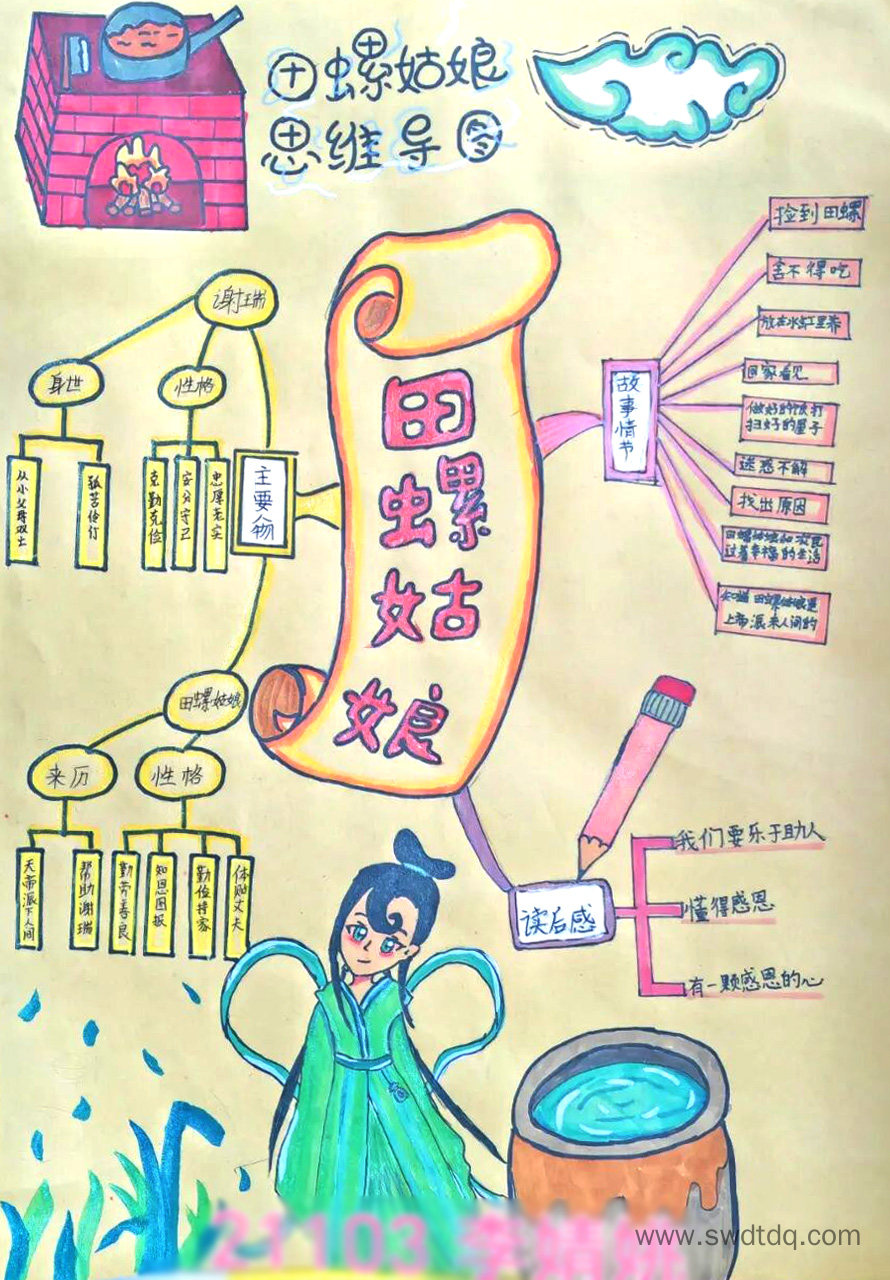 田螺姑娘
思维导图
田螺姑娘
主要人物
谢瑞
身世
从小父母双亡
孤苦伶仃
性格
克勤克俭
安分守己
忠厚老实
田螺姑娘
来历
天帝派下人间
帮助谢瑞
性格
勤劳善良
知恩图报
勤俭持家
体贴丈夫
故事情节
捡到田螺
舍不得吃
放在水缸里养
回家看见
做好的饭打
扫好的屋子
迷惑不解
找出原因
田螺姑娘和农民
过着幸福的生活
田螺姑娘是
上帝派来人间的
读后感
我们要乐于助人
懂得感恩
有一颗感恩的心
21103 李婧
www.swdtdq.com